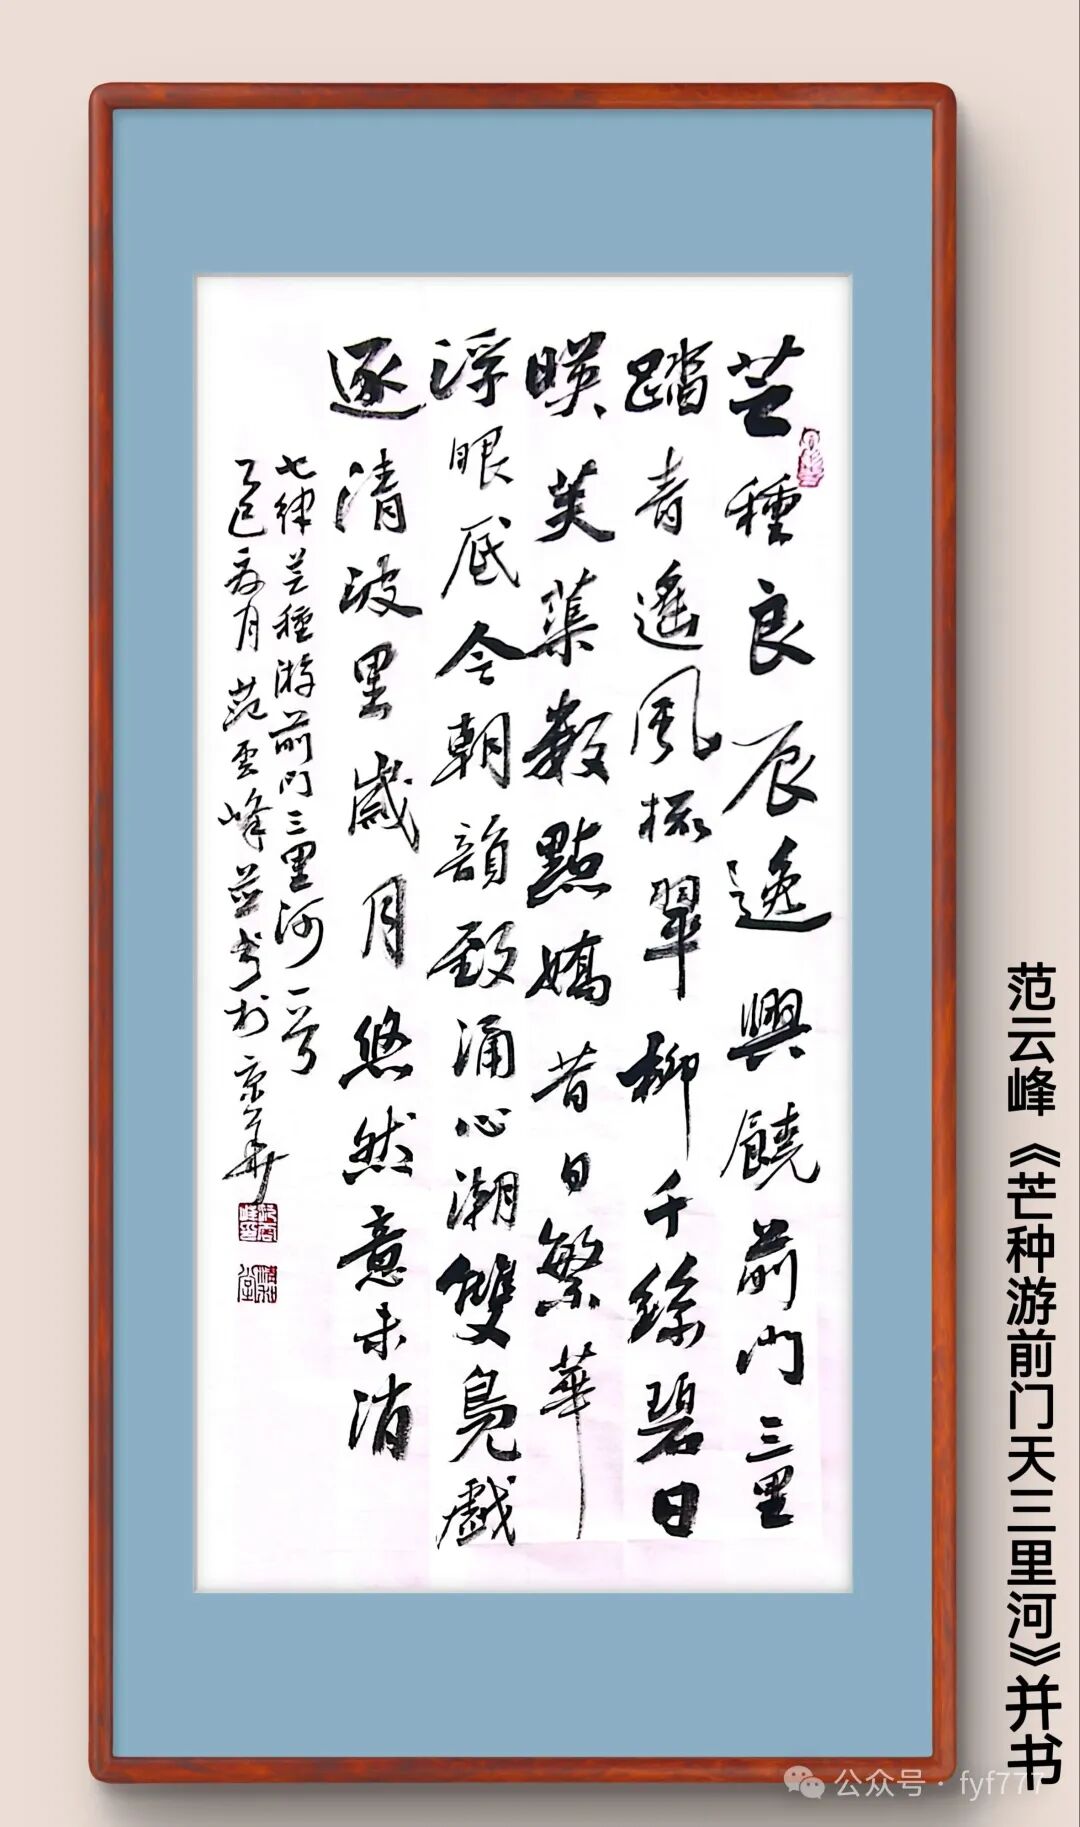 芒種良辰逸興饒前門三里
踏青遙風梳翠柳千絲碧日
暎芙蕖數點嬌昔日繁華
浮眼底今朝韻致涌心潮雙鳧戲
逐清波里歲月悠然意未消
七律芒種游前門三里河一首
乙巳夏月范雲峰並书於京華
范云峰《芒种游前门天三里河》并书
公众号·fyf777